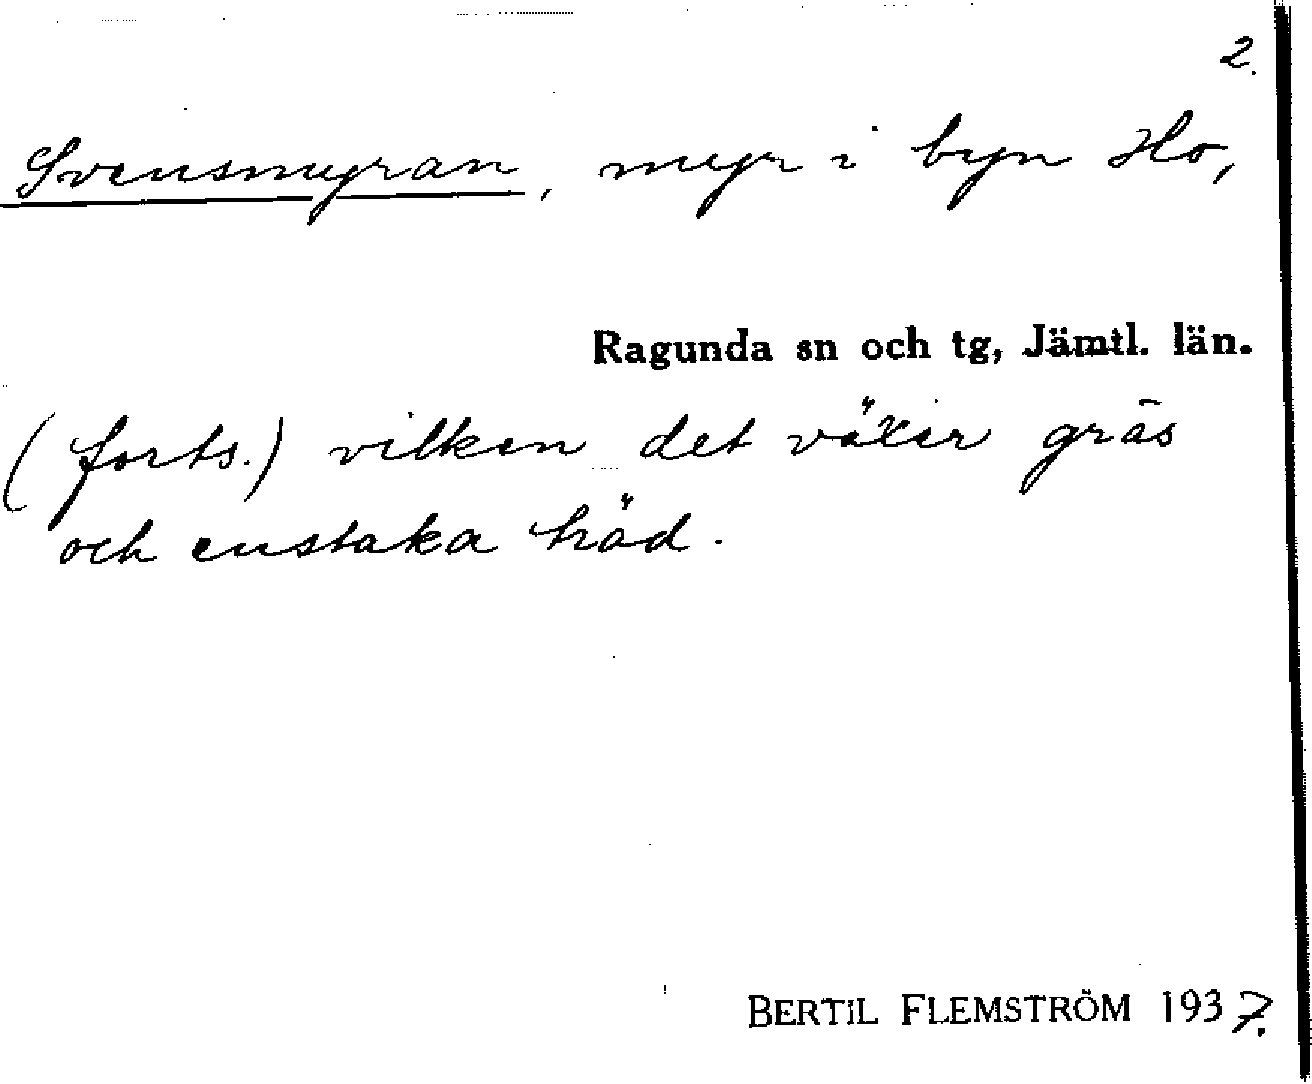 2.
Svensmyran, myr i byn Ho,
Ragunda sn och tg, Jämtl. län.
(forts.) vilken det växer gräs
och enstaka träd.
BERTIL FLEMSTRÖM 1937.